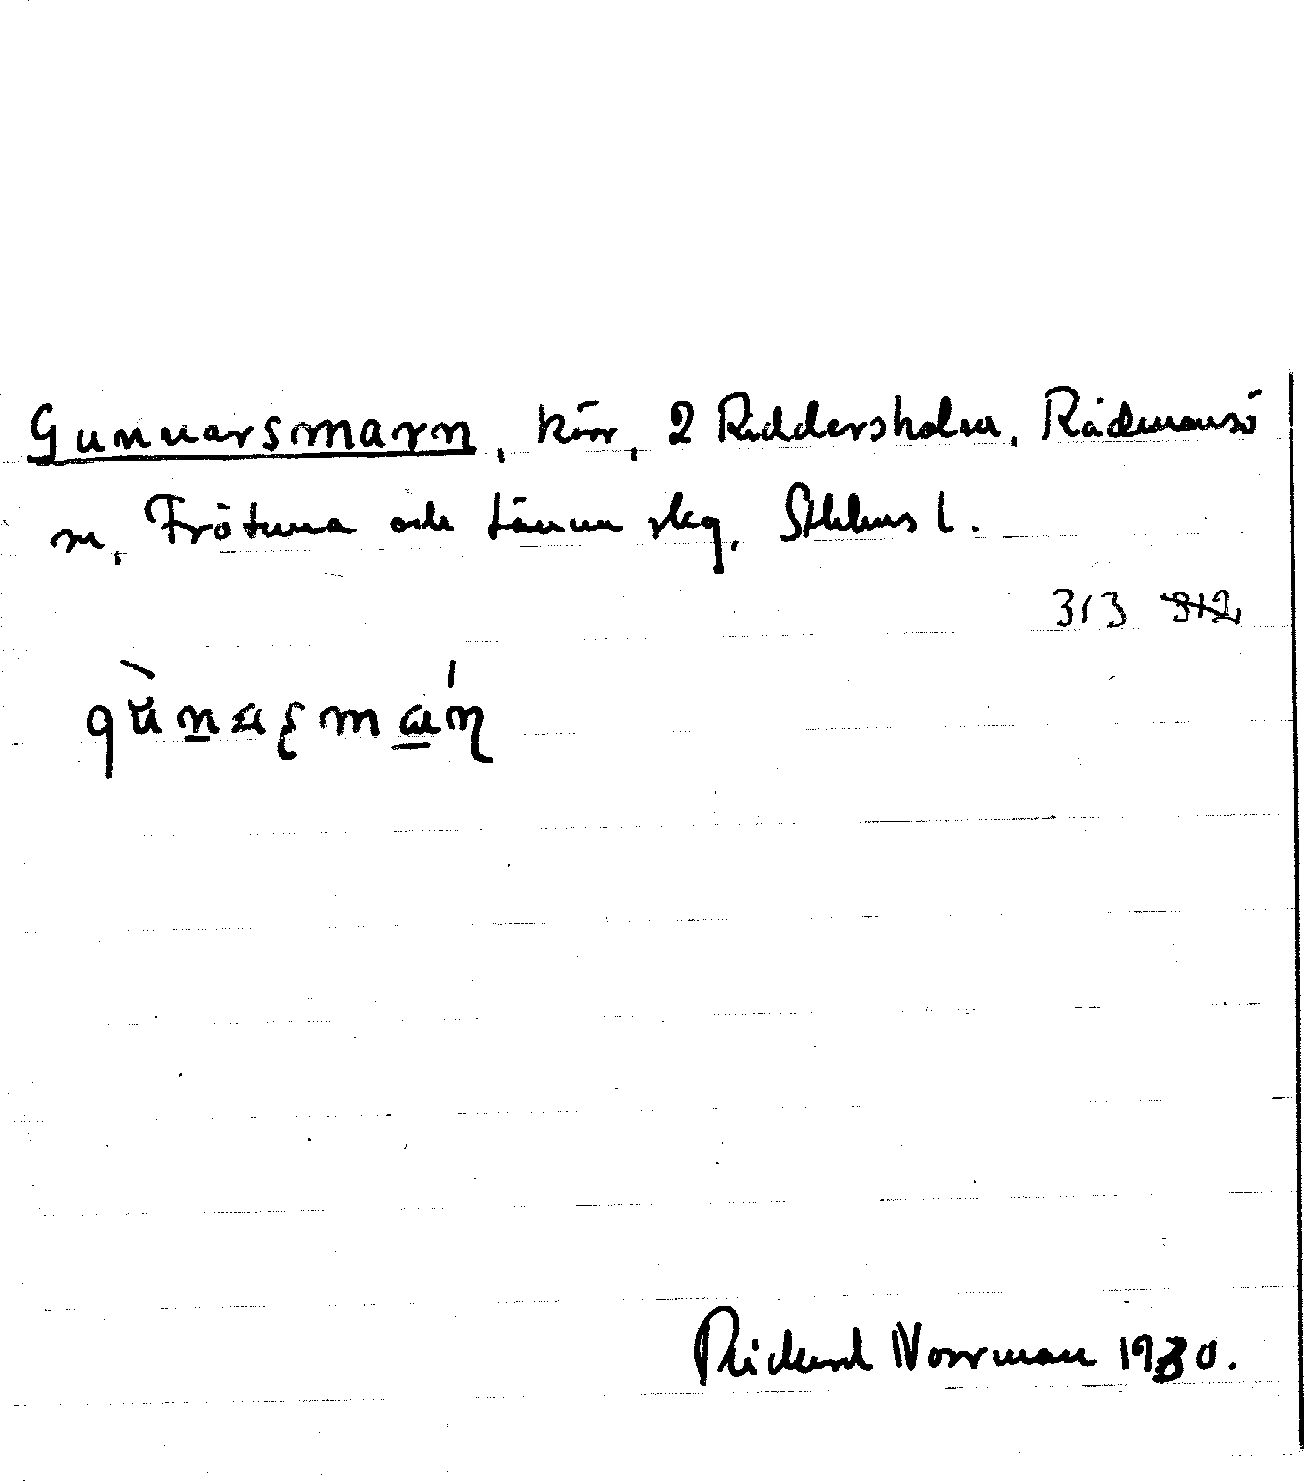 Gunnarsmarn, kärr, 2 Riddersholm, Rådmansö
sn, Frötuna och Länna skg, Sthlms l.
313 312
Rickard Norrman 1930.